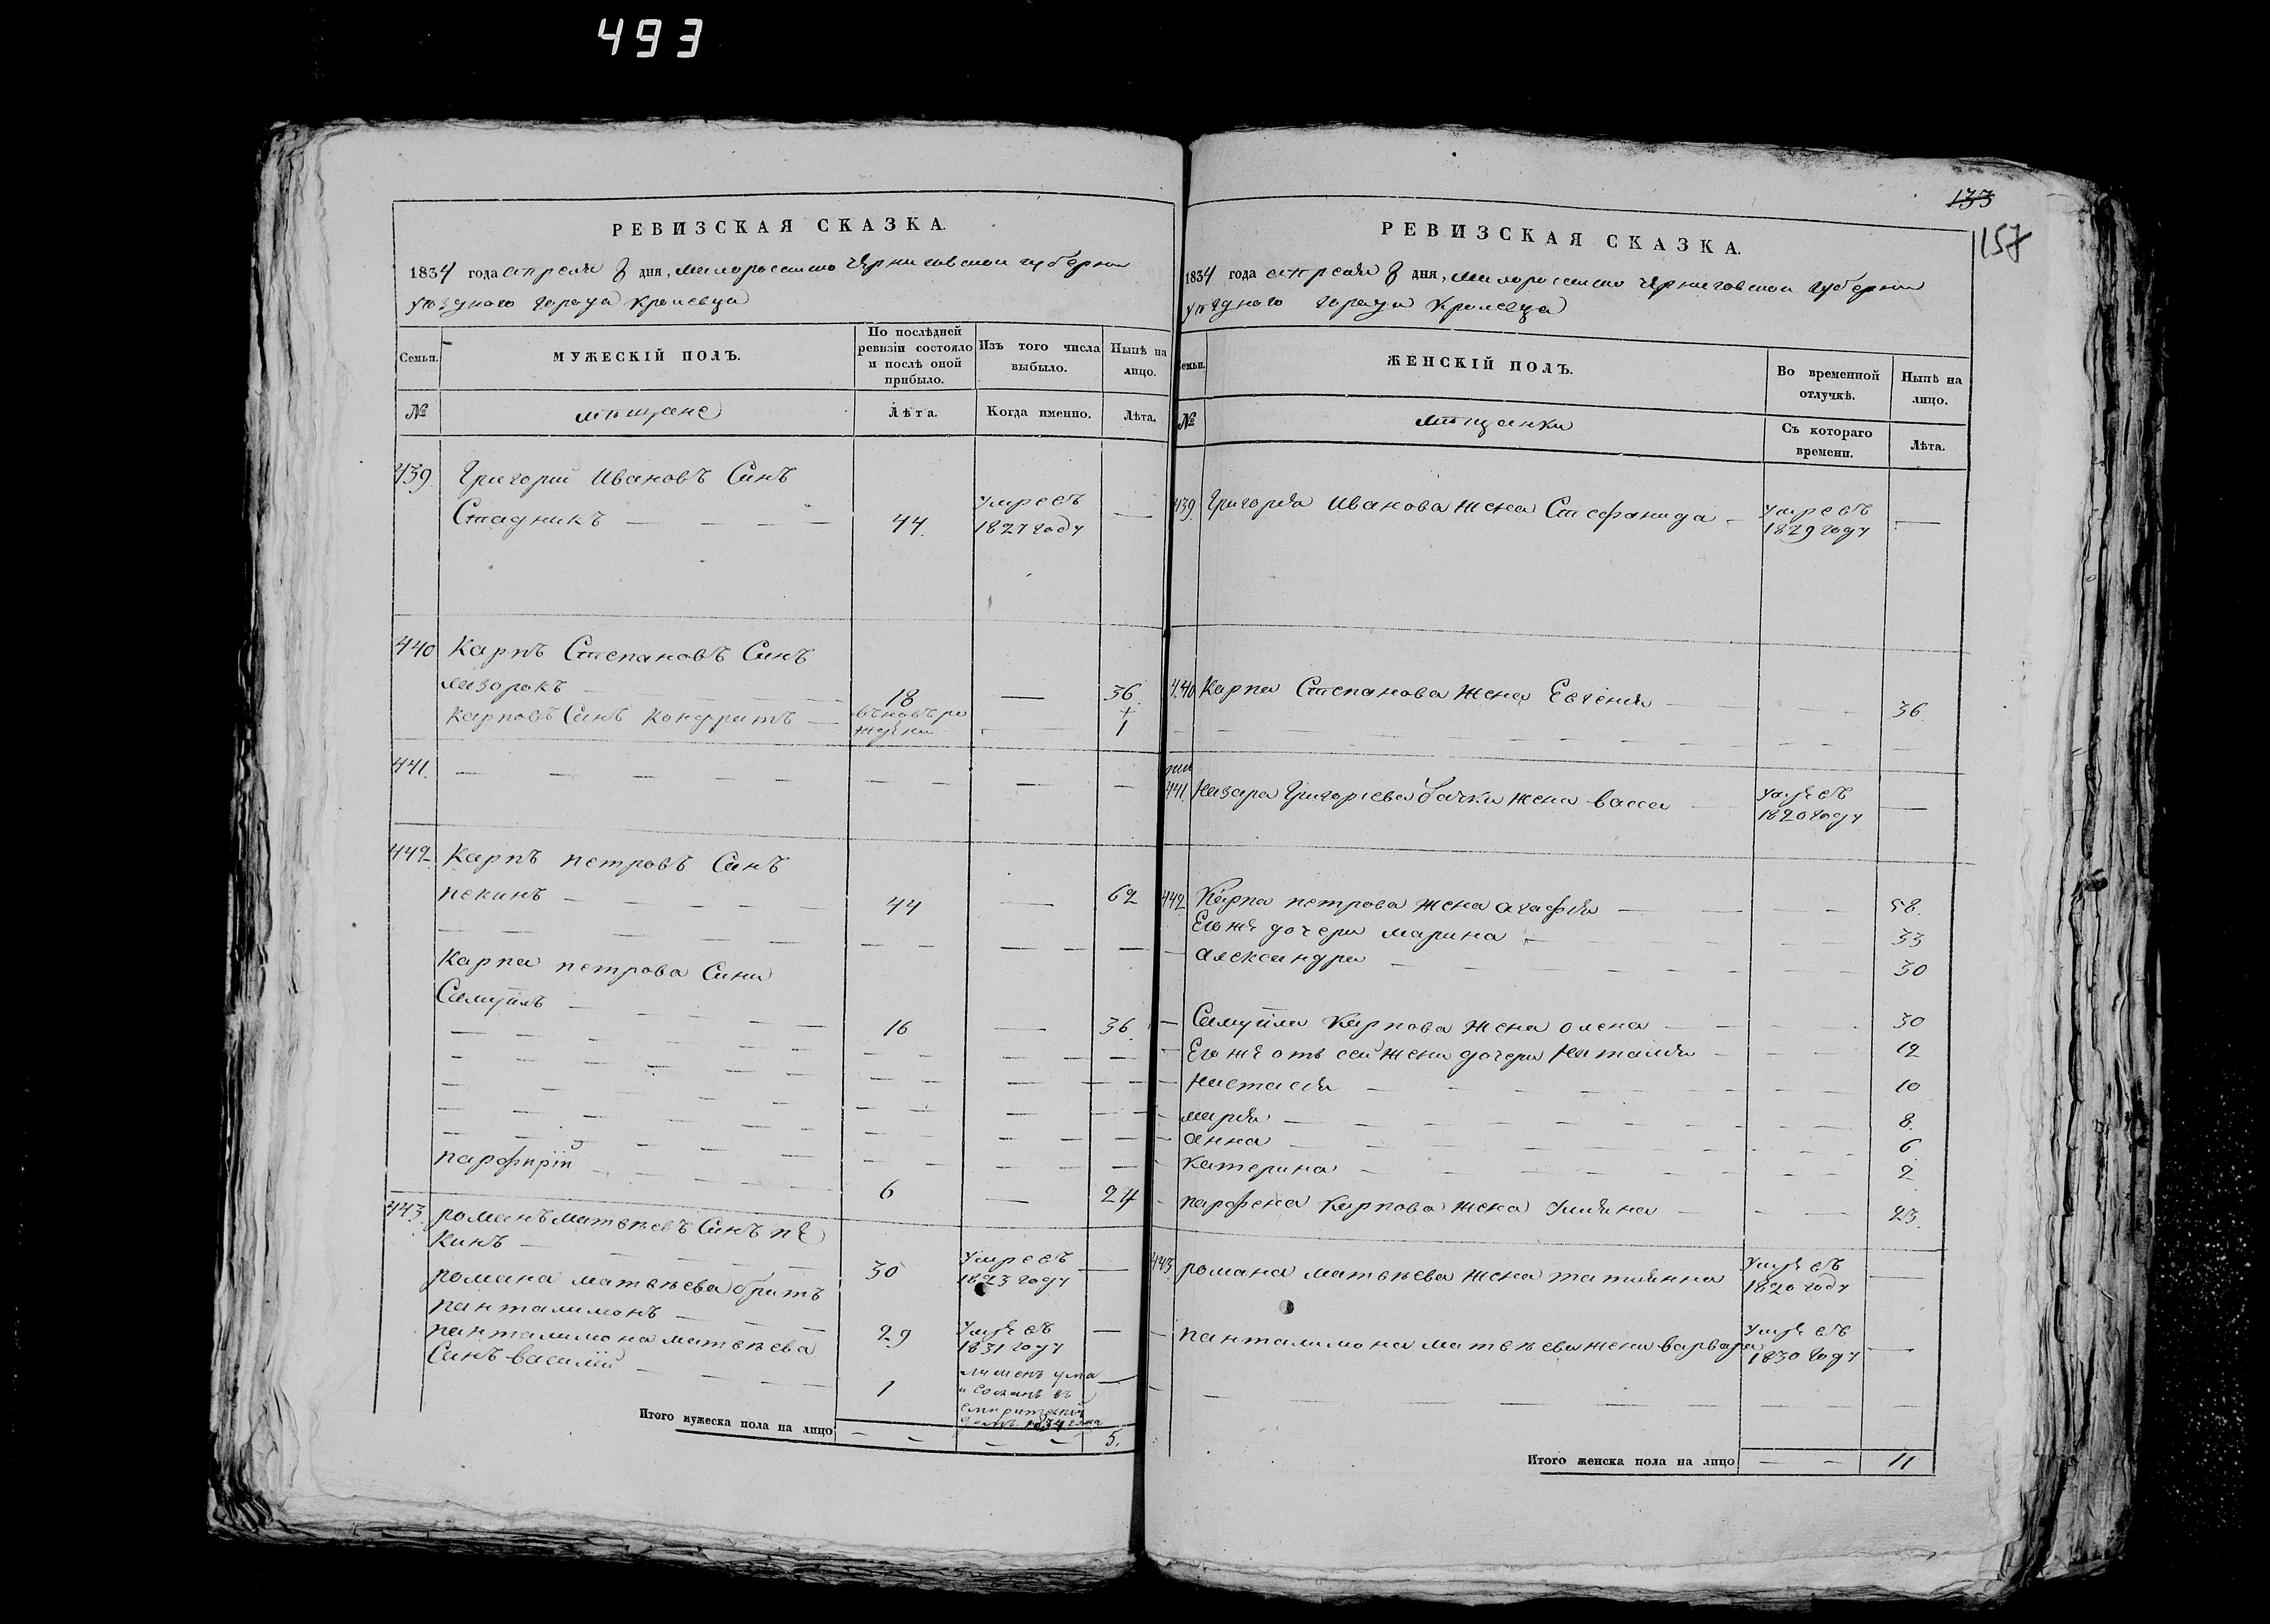 493
РЕВИЗСКАЯ СКАЗКА.
1834 года апреля 8 дня, малоросийско Черниговской губернии
уѣздного города Кролевца
Семьи.
МУЖЕСКІЙ ПОЛЪ.
По послѣдней ревизіи состояло и послѣ оной прибыло.
Изъ того числа выбыло.
Нынѣ на лицо.
№
мѣщане
Лѣта.
Когда именно.
Лѣта.
439 Григорий Ивановъ Синъ
Стадникъ — — — 44. умре въ 1827 году —
440 Карпъ Степановъ Синъ
лазорокъ — 18 — 36
Карповъ Синъ Кондратъ — вѣновь рожденъ — 1
441. — — — — — — — — —
442 Карпъ петровъ Синъ
пекинъ — — — — 44 — 62
Карпа петрова Сини
Самуйлъ — — — — 16 — 36
парфирій — — — — 6 — 24
443. романъ матвѣевъ Синъ пе
кинъ — — — — 30 умре въ 1823 году —
романа матвѣева братъ
панталимонъ — — — 29 умре въ 1831 году —
панталимона матвѣева
Синъ василій — — — 1 лишенъ ума и
1834 года
Итого мужеска пола на лицо — — — — 5.
133
157
РЕВИЗСКАЯ СКАЗКА.
1834 года апреля 8 дня, малоросийско Черниговской губернии
уѣздного города Кролевца
Семьи.
ЖЕНСКІЙ ПОЛЪ.
Во временной отлучкѣ.
Нынѣ на лицо.
№
мѣщанки
Съ котораго времени.
Лѣта.
439 Григорія Иванова жена Стефанида — умре въ 1829 году —
440 Карпа Степанова жена Евгенія — — — 36.
441. Назара Григориева жена васса умре въ 1820 году —
442 Карпа петрова жена агафія — — — 58.
Его же дочери марина — — — 33
александра — — — 30
Самуйла Карпова жена олена — — 30
Его же отъ сей жени дочери Наталія — — 12
Настасія — — — 10
марія — — — 8.
анна — — — 6
Катерина — — — 2
парфена Карпова жена уліяна — — — 23.
443. романа матвѣева жена татіянна умре въ 1820 году —
— панталимона матвѣева жена варвара умре въ 1830 году —
Итого женска пола на лицо — — 11